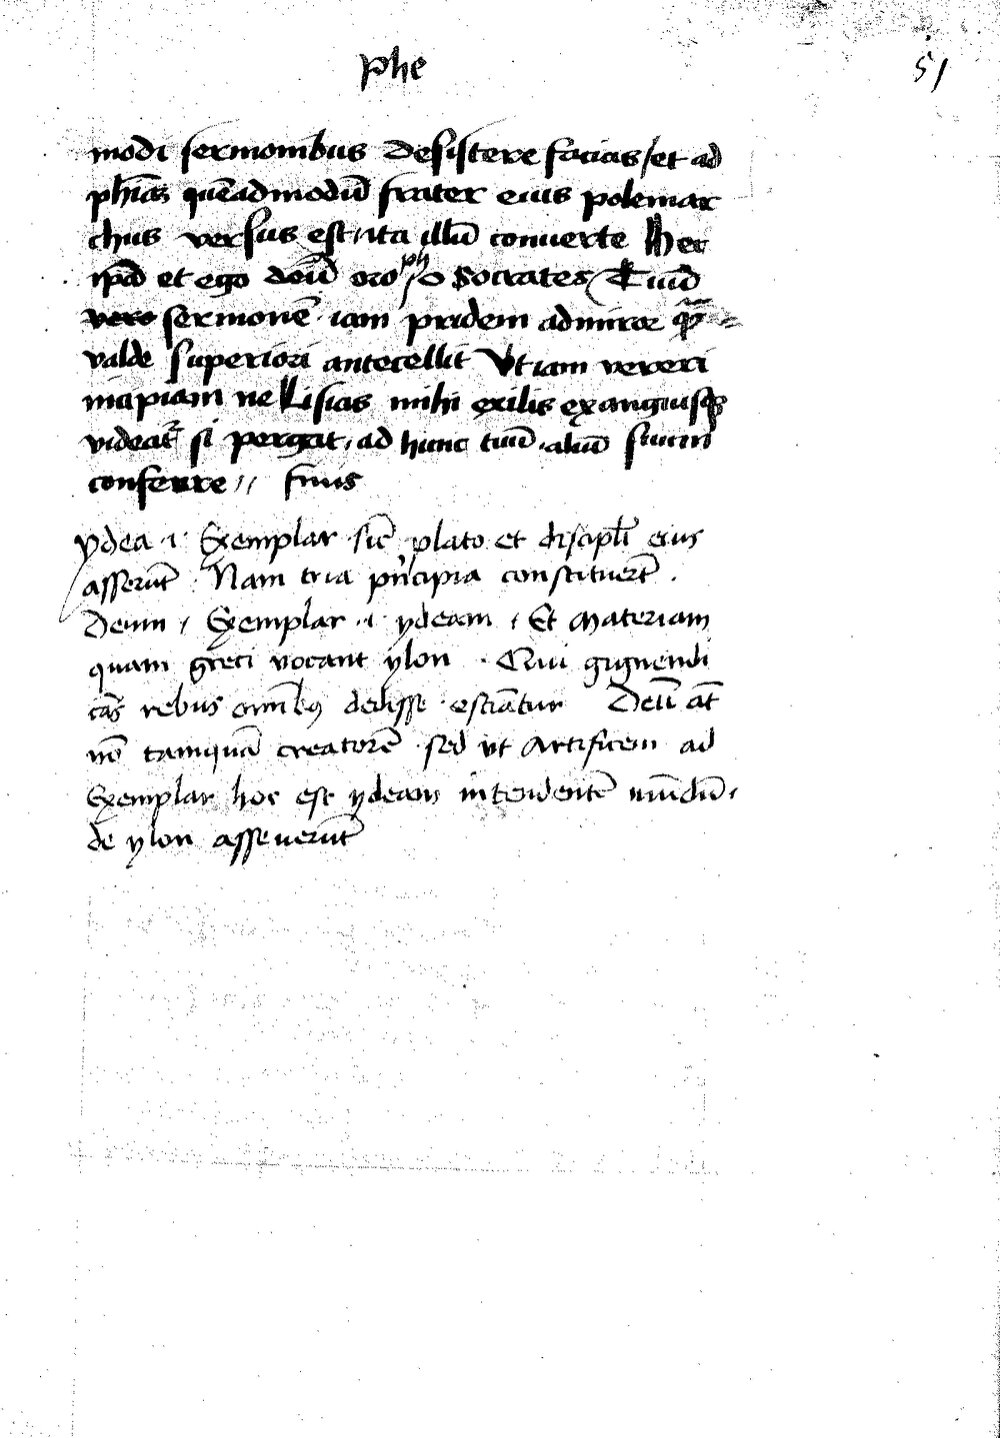 Phe 51
modi sermonibus desistere facias / et ad
phīas quēadmodū frater eius polemar
chus versus est, ita illū conuerte Hec
ipā et ego deū oro / ph o Socrates / Tuū
vero sermonē · iam pridem admiror
valde superiori antecellit Vt iam vereri
incipiam ne Lisias mihi exilis exanguisq̃
videat᷑ si pergat, ad hunc tuū · aliū suum
conferre // finis
ydea · i · Exemplar · sic̄ plato et discipl̄i eius
asserūt · Nam tria pn̄cipia constituerūt .
Deum , Exemplar · i · ydeam , Et Materiam
quam greci vocant ylon · Qui gignendi
cās rebus omībꝯ dedisse · Deū āt
nō tamquā creatorē · sed vt Artificem ad
Exemplar hoc est ydeam intendentē mūdū ,
de ylon asseuerūt